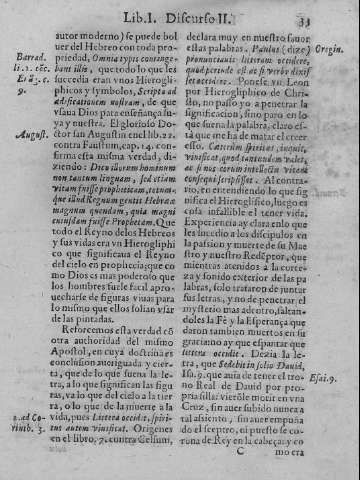 Lib. I. Discurso II. 33
autor moderno) se puede bol
uer del Hebreo con toda pro-
priedad, Omnia typis contenge-
bant illis, que todo lo que les
succedia eran vnos Hierogli-
phicos y symbolos, Scripta ad
ædificationem nostram, de que
vsaua Dios para enseñança su-
ya y nuestra. El glorioso Do-
ctor san Augustin en el lib. 22.
contra Faustum, cap. 14. con-
firma esta misma verdad, di-
ziendo: Dico illorum hominum
non tantum linguam, sed etiam
vitam fuisse propheticam, totum-
que illud Regnum gentis Hebrææ
magnum quendam, quia magni
cuiusdam fuisse Prophetam. Que
todo el Reyno de los Hebreos
y sus vidas era vn Hierogliphi
co que significaua el Reyno
del cielo en prophecia; que co
mo Dios es mas poderoso que
los hombres suele facil apro-
uecharse de figuras viuas para
lo mismo que ellos solian vsar
de las pintadas.
Reforcemos esta verdad cõ
otra authoridad del mismo
Apostol, en cuya doctrina es
conclusion aueriguada y cier-
ta, que de lo que suena la le-
tra, a lo que significan las figu
ras, va lo que del cielo a la tier
ra, o lo que de la muerte a la
vida, pues Littera occidit, spiri-
tus autem viuificat. Origenes
en el libro, 7. contra Celsum,
Barrad.
li. 2. cõc.
Eua. c.
9.
August.
2. ad Co-
rinth. 3.
declara muy en nuestro fauor
estas palabras. Paulus (dize)
pronunciauit litteram occidere,
quod perinde est ac si verbo dixis
set occidere. Pone se vn Leon
por Hierogliphico de Chris-
to, no passo yo a penetrar la
significacion, sino paro en lo
que suena la palabra, claro es-
tà que me ha de matar el creer
esso. Cæterum spiritus, inquit,
viuificat, quod tantundem valet,
ac si mos eorum intellectu vitam
consequi scripsisset. Al contra-
rio, en entendiendo lo que sig
nifica el Hieroglifico, luego es
cosa infallible el tener vida.
Experiencia ay clara en lo que
les succedio a los discipulos en
la passion y muerte de su Mae
stro y nuestro Redẽptor, que
mientras atendios à la corte-
za y sonido exterior de las pa
labras, solo trataron de juntar
sus letras, y no de penetrar el
mysterio mas adentro, faltan-
doles la Fè y la Esperança que
daron tambien muertos en su
gracia; no ay que espantar que
littera occidit. Dezia la le-
tra, que Sedebit in solio Dauid,
Isa. 9. que auia de tener el tro-
no Real de Dauid por pro-
pria silla: vieronle morir en vna
Cruz, sin auer subido nunca a
tal assiento, sin auer empuña
do el sceptro, ni puesto se co-
rona de Rey en la cabeça: y co
Origin.
Esai. 9.
C mo era